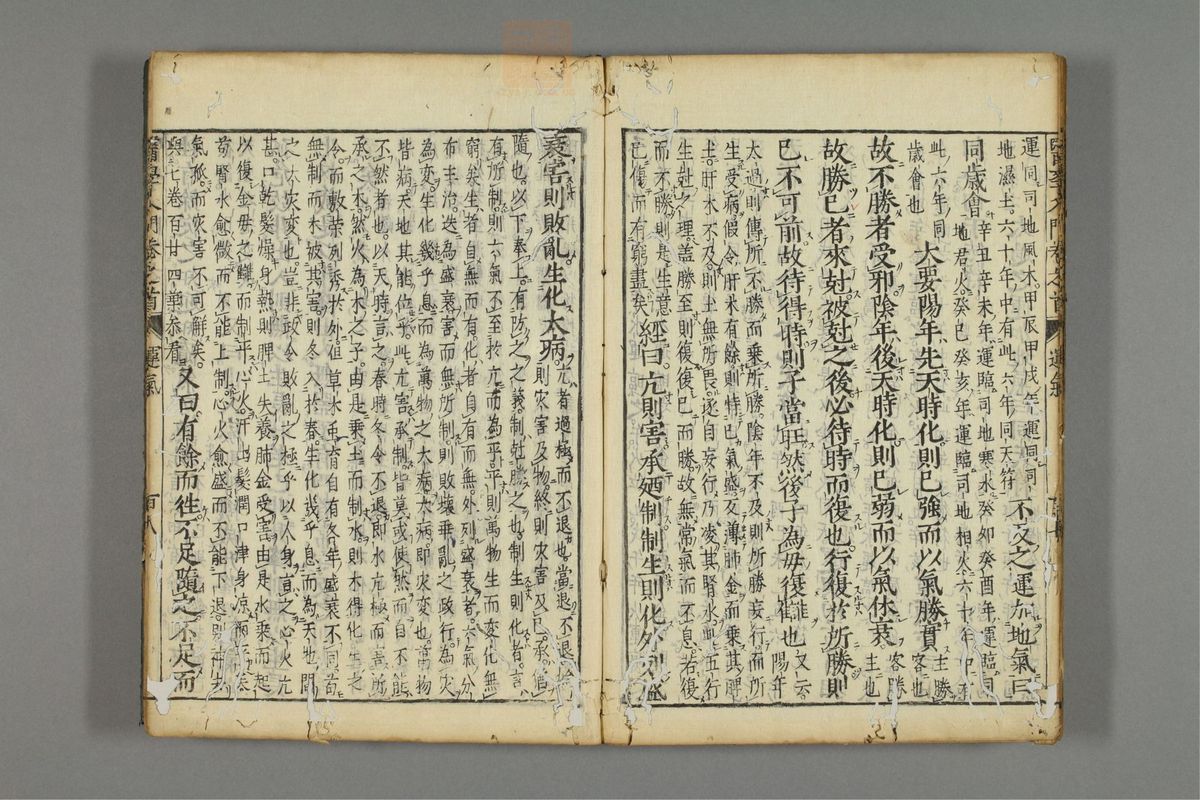 運同司地風木甲辰甲戌年運同司
地濕土六十年中有此六年同天符 不及之運加地氣曰
同歲會 辛丑辛未年運臨司地寒水癸卯癸酉年運臨司
地君火癸巳癸亥年運臨司地相火六十年中有
此六年同
歲會也 大要陽年先天時化則己強而以氣勝實 主勝
客也
故不勝者受邪陰年後天時化則己弱而以氣休衰 客勝
主也
故勝己者來尅被尅之後必待時而復也行復於所勝則
己不可前故待得時則子當旺然後子為毋復讎也 又云
陽年
太過則傳所不勝而乗所勝陰年不及則所勝妄行而所
生受病假令肝木有餘則恃己氣盛反薄肺金而乗其脾
土肝木不及則土無所畏遂自妄行乃凌其腎水此五行
生尅之理盖勝至則復復已而勝故無常氣而不息若復
而不勝則是生意
已傷而有窮盡矣 經曰亢則害承廼制制生則化外列盛
衰害則敗亂生化大病 亢者過極而不退也當退不退
則灾害及物終則灾害及己承猶
隨也以下奉上有防之之義制尅勝之也制生則化者言
有所制則六氣不至於亢而為平平則萬物生而變化無
窮矣生者自無而有化者自有而無外列盛衰者六氣分
布主治迭為盛衰害而無所制則敗壞乗亂之政行為灾
為変生化幾乎息而為萬物之大病大病即灾変也萬物
皆病天地其能位乎此亢害承制皆莫或使然而自不能
不然者也以天時言之春時冬令不退即水亢極而害所
承之木然火為木之子由是乗土而制水則木得化生之
令而敷榮列秀於外但草木禹育自有各年盛衰不同苟
無制而木被其害則冬入於春生化幾乎息而為天地間
之大灾変也豈非政令敗亂之極乎以人身言之心火亢
甚口乾髮燥身熱則脾土失養肺金受害由是水乗而起
以復金毋之讎而制平心火汗出髮潤口津身涼而平矣
苟腎水愈微而不能上制心火愈盛而不能下退則神去
氣孤而灾害不可解矣
與七卷百廿四葉叅看 又曰有餘而徃不足隨之不足而
運氣